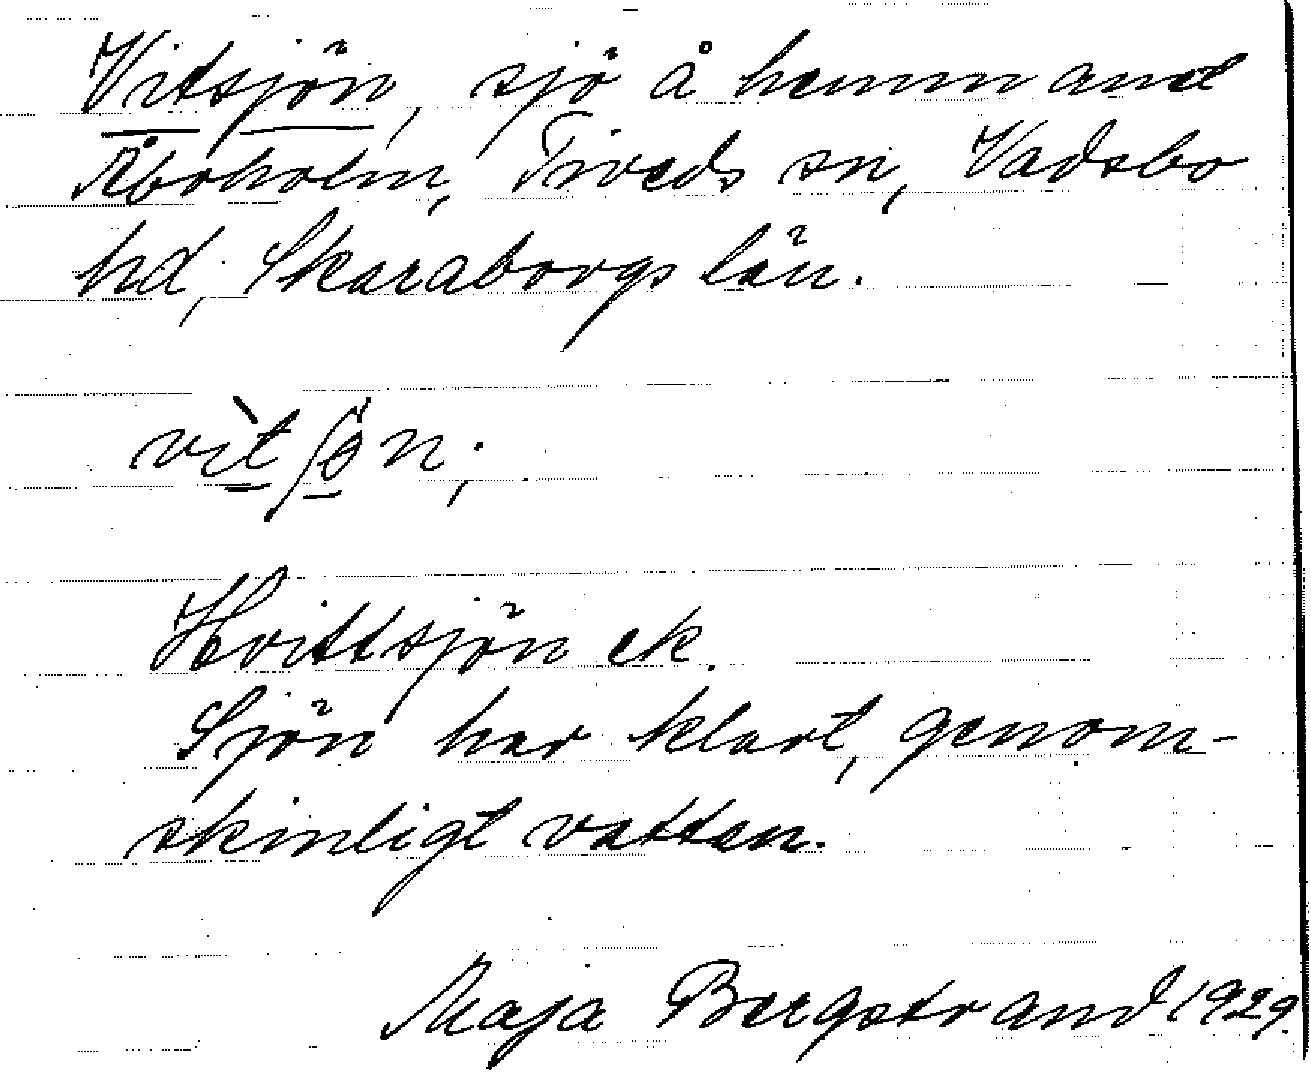 Vitsjön, sjö å hemmanet
Åboholm, Tiveds sn, Vadsbo
hd, Skaraborgs län.
vìtʃön;
Hvittsjön ek.
Sjön har klart, genom-
skinligt vatten.
Maja Bergstrand 1929.